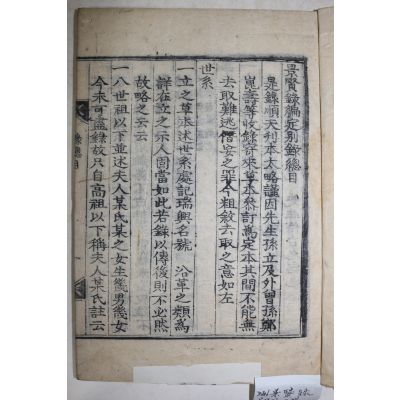 景賢錄編定別錄總目
是錄順天刊本太略謹因先生孫立及外曾孫鄭
崑壽等收錄許來草本叅訂爲定本其間不能無
去取難逃僭妄之罪今粗敘去取之意如左
世系
一立之草本述世系處記瑞興名號 沿革之類爲
詳在立之示人固當如此若錄以傳後則不必然
故略之云云
一八世祖以下並述夫人某氏某之女生幾男幾女
今未可盡錄故只自高祖以下稱夫人某氏註云
錄總目